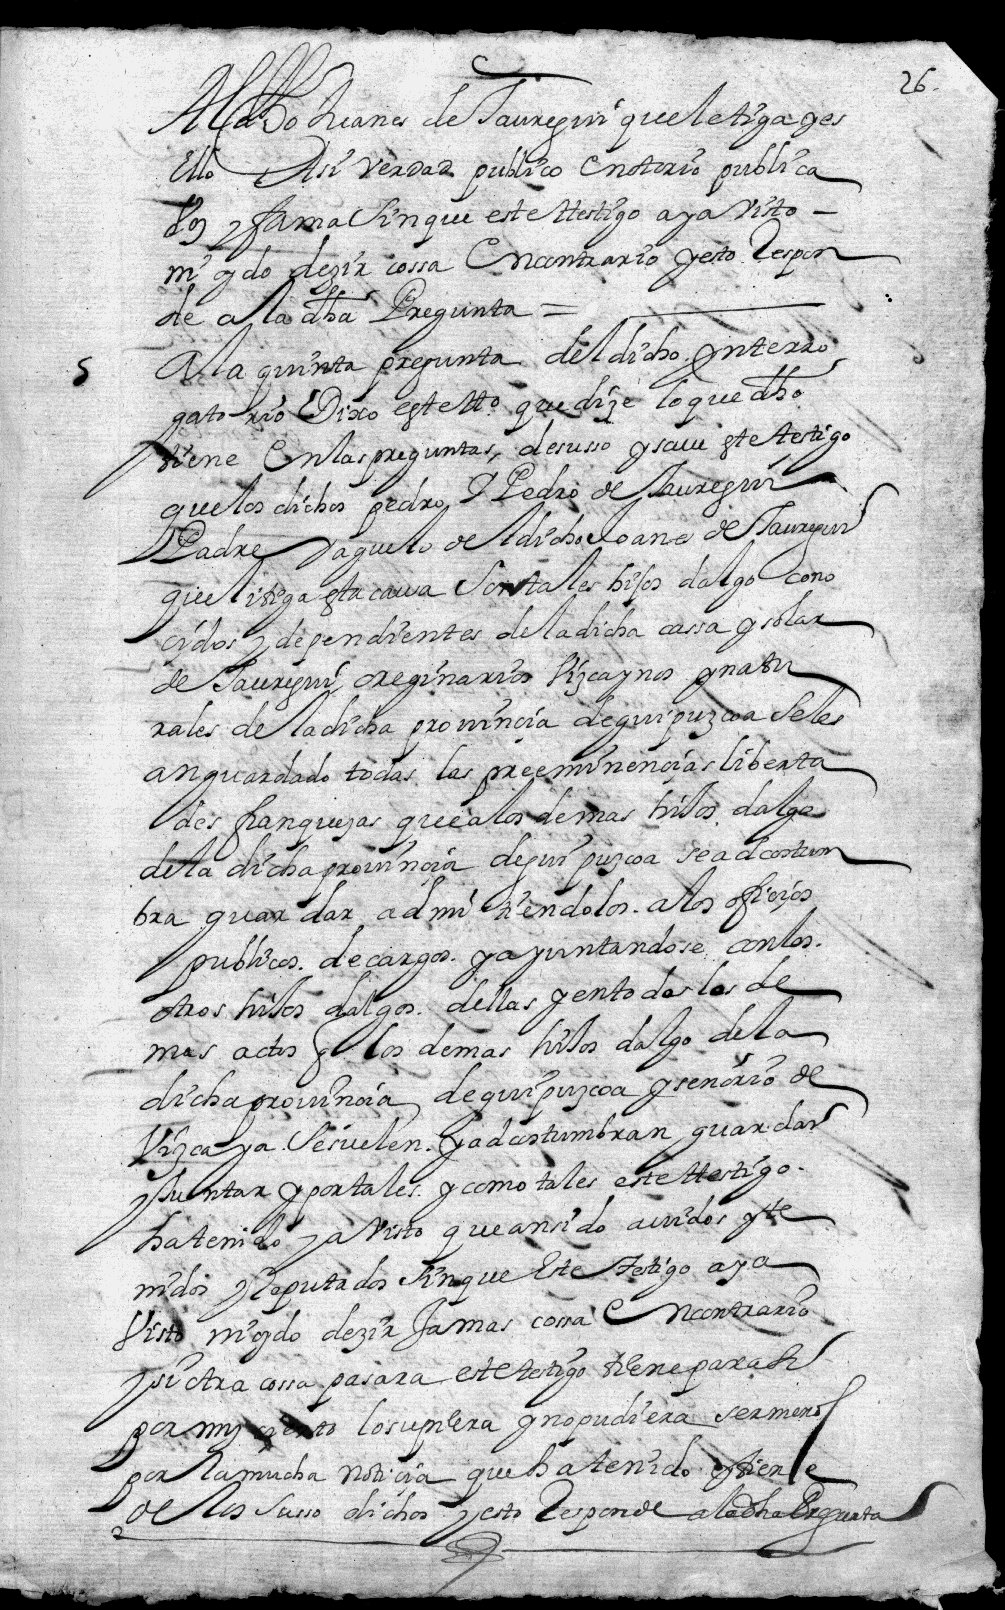 26.
Al dho Juanes de Jauregui que letiga y es
ello Asi verdad publico enotorio publica
boz y fama sin que este testigo aya visto –
ni oydo dezir cossa en contrario y esto Respon
de a la dha Pregunta =
5 A la quinta pregunta del dicho ynterro
gatorio Dixo este tto que dize lo que dho
tiene en las preguntas, desusso y save este testigo
que los dichos pedro y Pedro de Jauregui
Padre y aguelo del dicho Joanes de Jauregui
que litiga esta caussa son tales hijos dalgo cono
cidos y dependientes de la dicha cassa y solar
de Jauregui oreginarios Vizcaynos y natu
rales de la dicha provincia de guipuzcoa se les
an guardado todas las preeminencias liberta
des franquezas que a los demas hijos dalgo
de la dicha provincia de guipuzcoa se adcostum
bra guardar admitiendolos. a los oficios
publicos. de cargos. y ayuntandose con los.
otros hijos dalgos. dellas y en todos los de
mas actos q los demas hijos dalgo de la
dicha provincia de guipuzcoa y senorio de
Vizcaya. Se suelen. y adcostumbran guardar
y juntar y por tales. y como tales este ttestigo.
ha tenido y a visto que an sido avidos y te
nidos y Reputados sin que este testigo aya
visto ni oydo dezir Jamas cossa en contrario
y si otra cossa pasara este testigo tiene para si
por muy cierto lo supiera y no pudiera ser menos
por la mucha noticia que ha tenido y tiene
de los susso dichos y esto Responde a la dha Pregunta